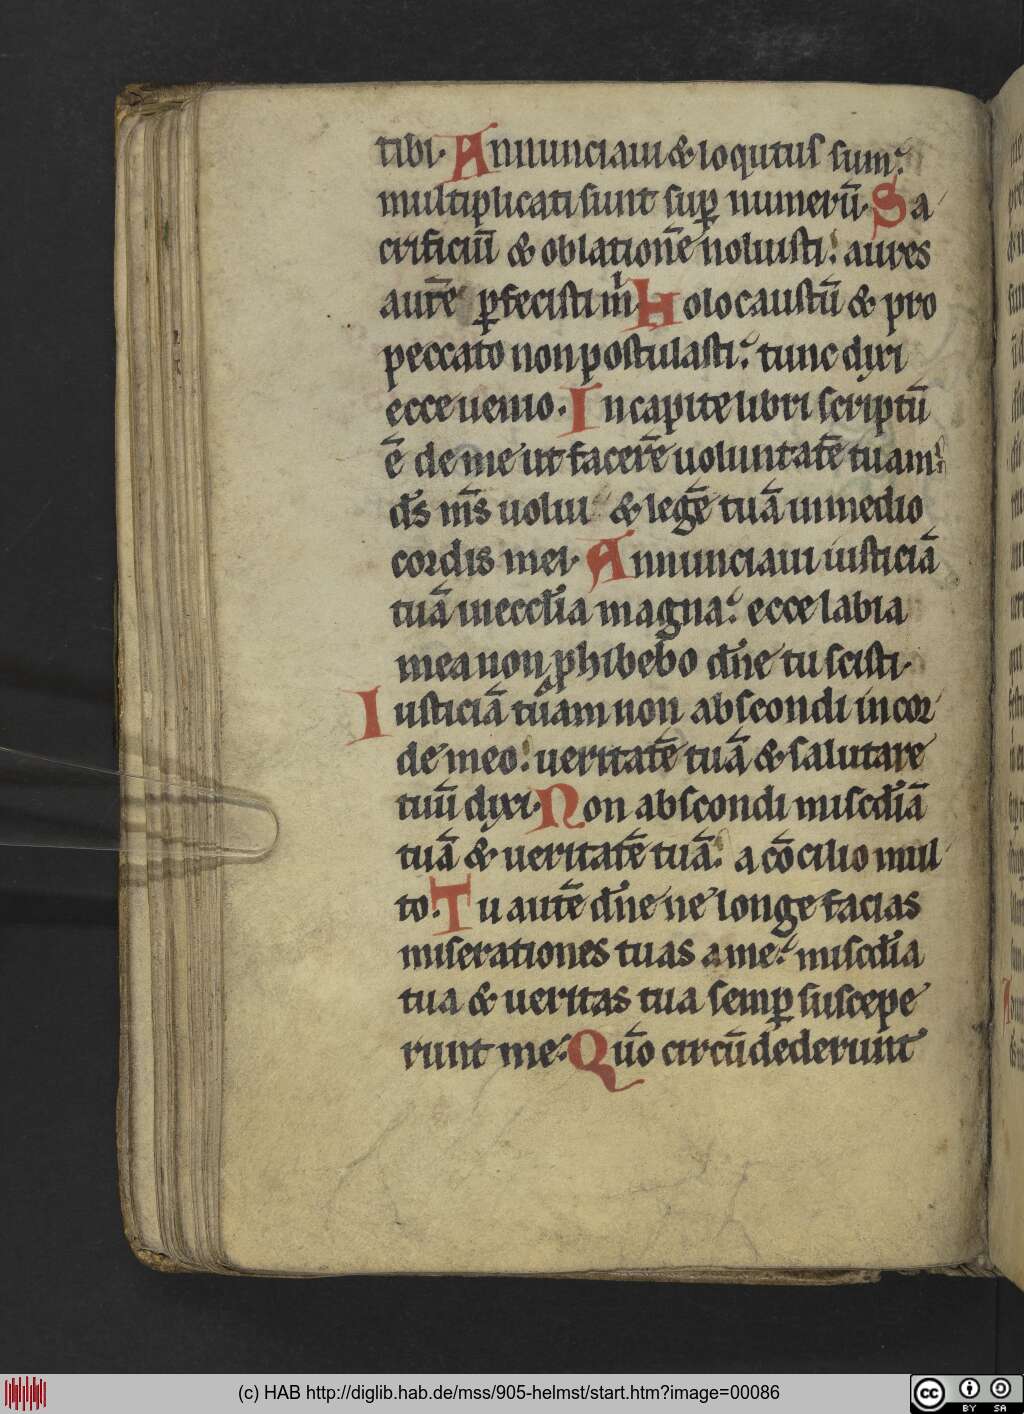 tibi. Annunciaui & loqutus sum:
multiplicati sunt sup̱ numerū. Sa
crificiū & oblationē noluisti: aures
autē p̱fecisti m̍. Holocaustū & pro
peccato non postulasti: tunc dixi
ecce uenio. In capite libri scriptū
ē de me ut facerē uoluntatē tuam:
d̄s m̄s uolui & legē tuā in medio
cordis mei. Annunciaui iusticiā
tuā in eccl̄ia magna: ecce labia
mea non p̱hibebo dn̄e tu scisti.
Iusticiā tuam non abscondi in cor
de meo: ueritatē tuā & salutare
tuū dixi. Non abscondi misc̄diā
tuā & ueritatē tuā: a cōcilio mul
to. Tu autē dn̄e ne longe facias
miserationes tuas a me: misc̄dia
tua & ueritas tua semp̱ suscepe
runt me. Qūo circūdederunt
(c) HAB http://diglib.hab.de/mss/905-helmst/start.htm?image=00086
cc BY SA